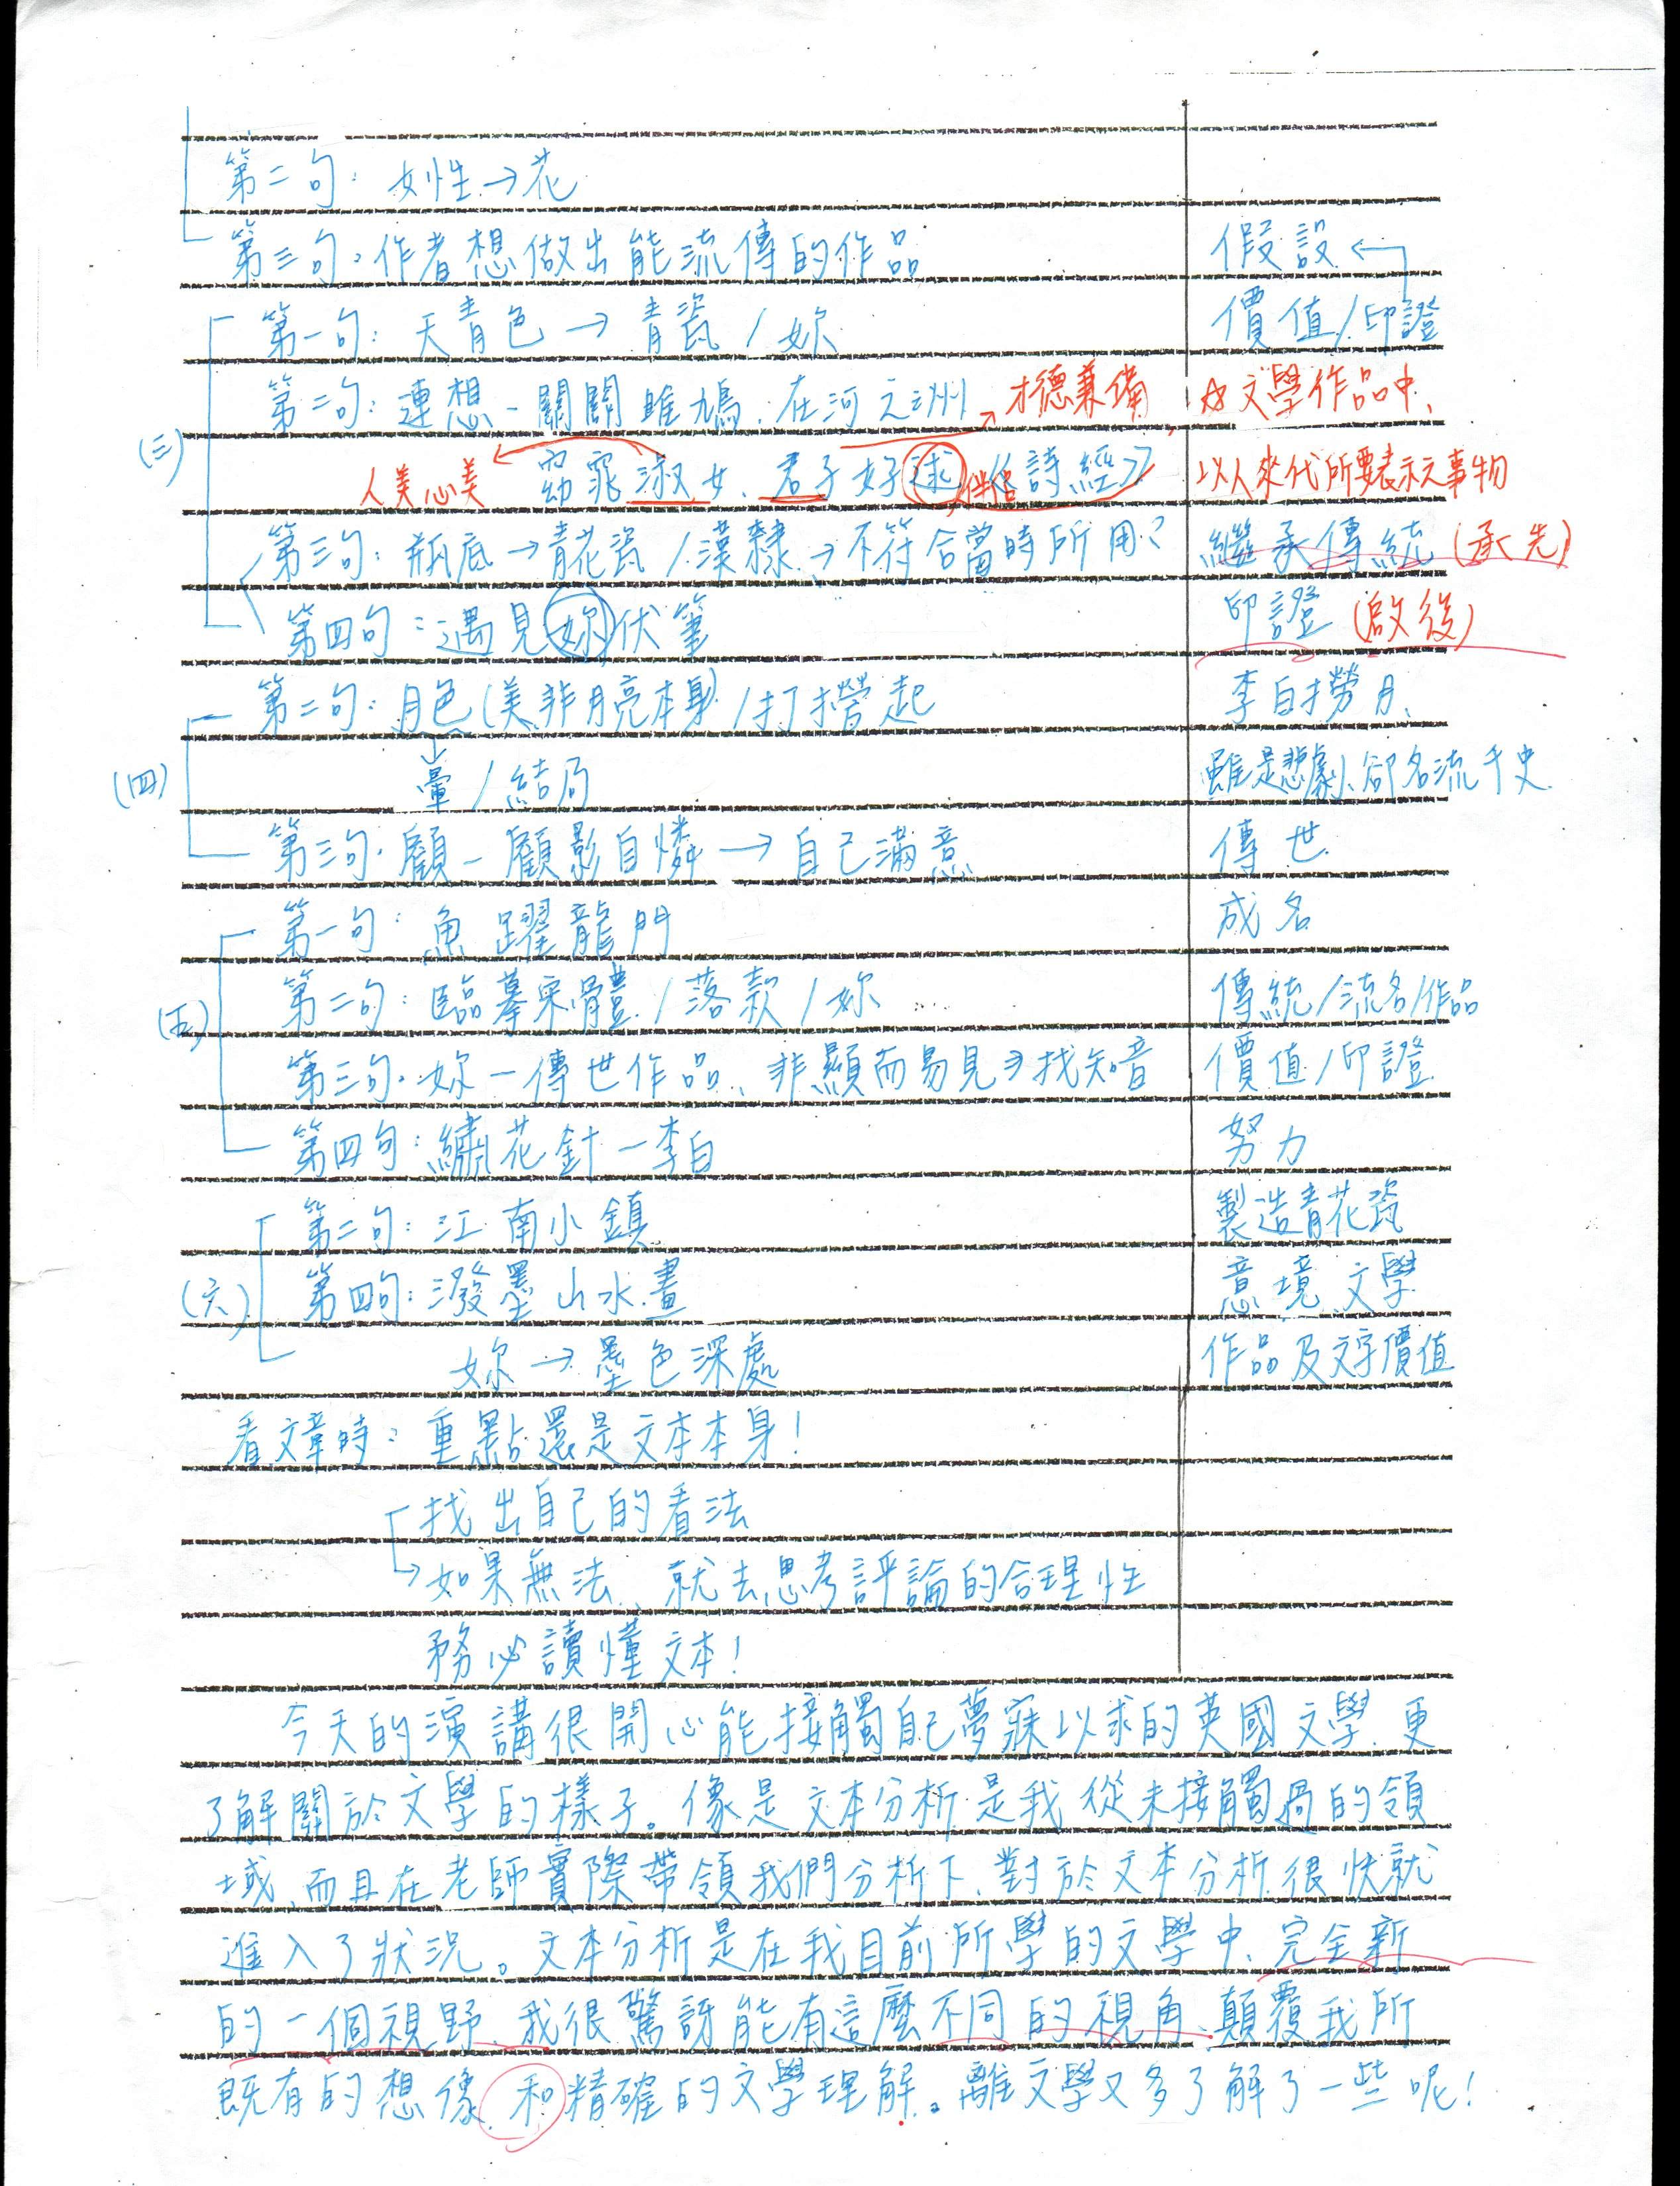 第二句：女性→花
第三句：作者想做出能流傳的作品 假設←
第一句：天青色→青瓷/妳 價值/印證
第二句：連想-關關雎鳩、在河之洲 才德兼備 ☆文學作品中、
(三)
人美心美 窈窕淑女、君子好逑 伴侶《詩經》 以人來代所要表示之事物
第三句：瓶底→青花瓷/漢隸→不符合當時所用？ 繼承傳統(承先)
第四句：遇見妳伏筆 印證(啟後)
第二句：月色(美非月亮本身)/打撈起 李白撈月、
(四) ↓暈/結局 雖是悲劇、卻名流千史
第三句：顧-顧影自憐→自己滿意 傳世
第一句：魚躍龍門 成名
(五) 第二句：臨摹宋體/落款/妳 傳統/流名/作品
第三句：妳-傳世作品、非顯而易見→找知音 價值/印證
第四句：繡花針-李白 努力
第二句：江南小鎮 製造青花瓷
(六) 第四句：潑墨山水畫 意境、文學
妳→墨色深處 作品及文字價值
看文章時：重點還是文本本身！
找出自己的看法
→如果無法、就去思考評論的合理性
務必讀懂文本！
今天的演講很開心能接觸自己夢寐以求的英國文學、更
了解關於文學的樣子。像是文本分析是我從未接觸過的領
域、而且在老師實際帶領我們分析下、對於文本分析很快就
進入了狀況。文本分析是在我目前所學的文學中、完全新
的一個視野、我很驚訝能有這麼不同的視角、顛覆我所
既有的想像、和精確的文學理解。離文學又多了解了一些呢！